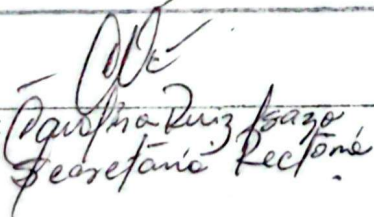 Carolina Ruiz Isaza
Secretaria Rectoria